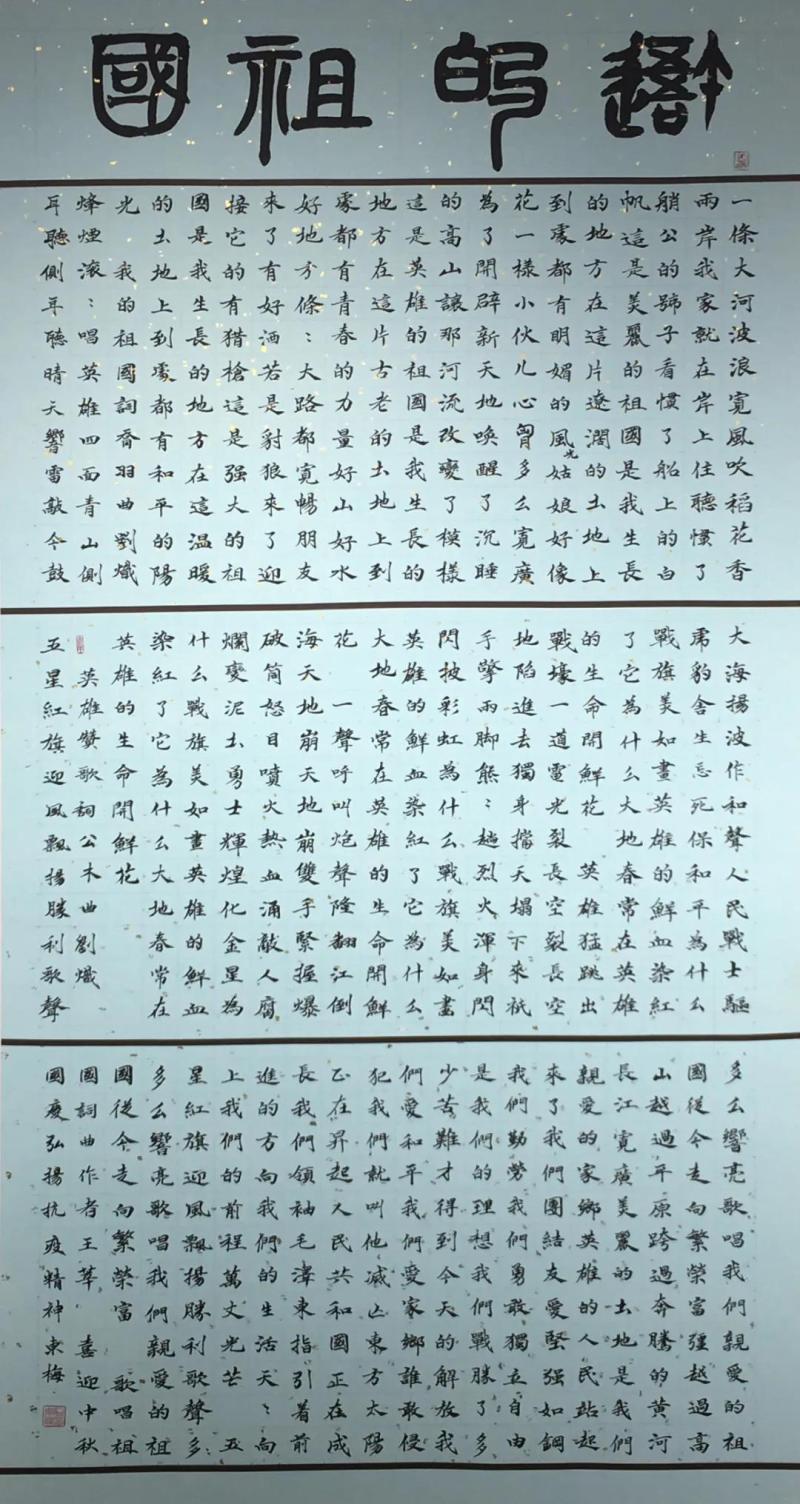 的祖國
一條大河波浪寬風吹稻花香
兩岸我家就在岸上住聽慣了
艄公的號子看慣了船上的白
帆這是美麗的祖國是我生長
的地方在這片遼濶的土地上
到處都有明媚的風光姑娘好像
花一樣小伙儿心胸多么寬廣
為了開辟新天地喚醒了沉睡
的高山讓那河流改變了模樣
這是英雄的祖國是我生長的
地方在這片古老的土地上到
處都有青春的力量好山好水
好地方條：大路都寬暢朋友
來了有好酒若是豺狼來了迎
接它的有猎槍這是强大的祖
國是我生長的地方在這温暖
的土地上到處都有和平的陽
光 我的祖國詞喬羽曲劉熾
烽煙滾：唱英雄四面青山側
耳聽側耳聽晴天響雷敲今鼓
大海揚波作和聲人民戰士驅
虎豹舍生忘死保和平為什么
戰旗美如畫英雄的鮮血染紅
了它為什么大地春常在英雄
的生命開鮮花 英雄猛跳出
戰壕一道電光裂長空裂長空
地陷進去獨身擋天塌下來祇
手擎兩脚熊：趟烈火渾身閃
閃披彩虹為什么戰旗美如畫
英雄的鮮血染紅了它為什么
大地春常在英雄的生命開鮮
花 一聲呼叫炮聲隆翻江倒
海天地崩天地崩雙手緊握爆
破筒怒目噴火熱血涌敵人腐
爛變泥土勇士輝煌化金星為
什么戰旗美如畫英雄的鮮血
染紅了它為什么大地春常在
英雄的生命開鮮花
英雄贊歌詞公木曲劉熾
五星紅旗迎風飄揚勝利歌聲
多么響亮歌唱我們親愛的祖
國從今走向繁榮富彊越過高
山越過平原跨過奔騰的黄河
長江寬廣美麗的土地是我們
親愛的家鄉英雄的人民站起
來了我們團結友愛堅强如鋼
我們勤勞我們勇敢獨立自由
是我們的理想我們戰勝了多
少苦難才得到今天的解放我
們愛和平我們愛家鄉誰敢侵
犯我們就叫他滅亡東方太陽
正在昇起人民共和國正在成
長我們領袖毛澤東指引着前
進的方向我們的生活天：向
上我們的前程萬丈光芒 五
星紅旗迎風飄揚勝利歌聲多
多么響亮歌唱我們親愛的祖
國從今走向繁榮富 歌唱祖
國詞曲作者王莘 喜迎中秋
國慶弘揚抗疫精神東梅